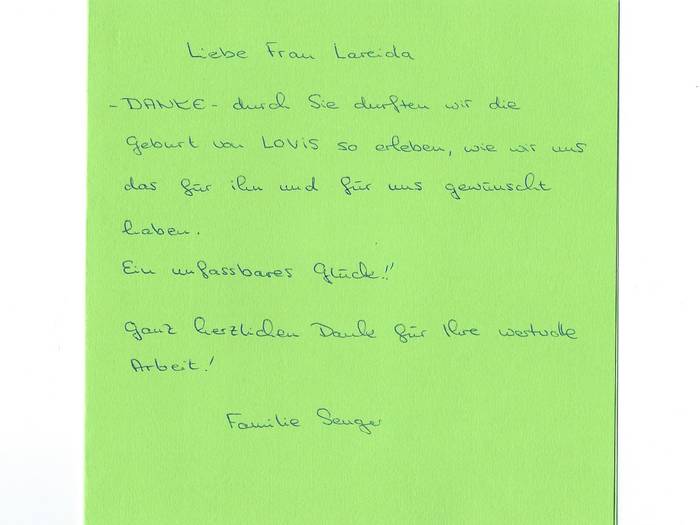 Liebe Frau Lareida
- DANKE - durch Sie durften wir die
Geburt von LOVIS so erleben, wie wir uns
das für ihn und für uns gewünscht
haben.
Ein unfassbares Glück!!
Ganz herzlichen Dank für Ihre wertvolle
Arbeit!
Familie Senger